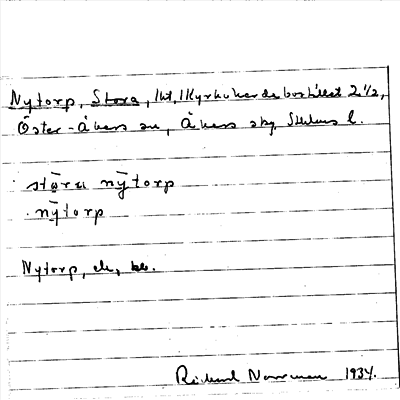 Nytorp, Stora, lht, 1 Kyrkoherdebostället 2 1/2,
Öster-Åkers sn, Åkers skg, Sthlms l.
stōra nȳtorp
nȳtorp
Nytorp, ek, kb.
Rickard 1934.